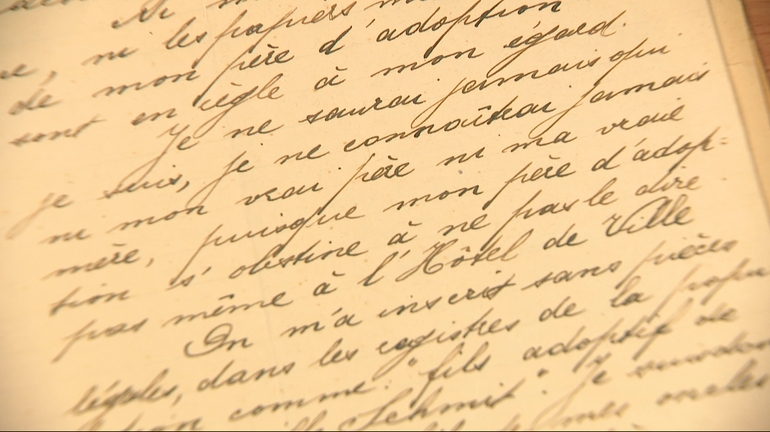 ni les papiers
de mon père d'adoption
sont en règle à mon égard.
Je ne saurai jamais qui
je suis, je ne connaîtrai jamais
ni mon vrai père ni ma vraie
mère, puisque mon père d'adop=
tion s'obstine à ne pas le dire
pas même à l'Hôtel de Ville
On m'a inscrit sans pièces
légales, dans les registres de la popu
comme "fils adoptif de
Schmit". Je
mes oncles